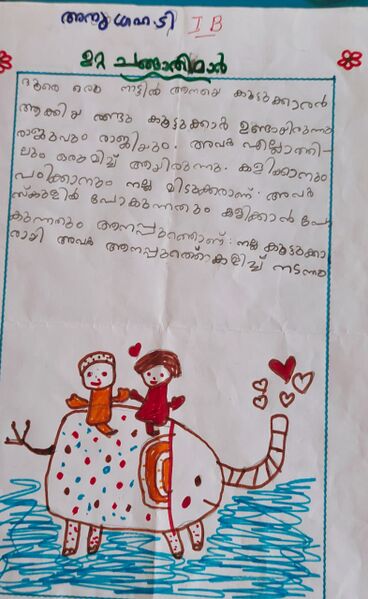 അനുഗ്രഹ. ടി I B
ഉറ്റ ചങ്ങാതിമാർ
ദൂരെ ഒരു നാട്ടിൽ ആനയെ കൂട്ടുക്കാരൻ
ആക്കിയ രണ്ടു കൂട്ടുക്കാർ ഉണ്ടായിരുന്നു
രാജുവും രാജിയും. അവർ എല്ലാത്തി-
ലും ഒരുമിച്ച് ആയിരുന്നു. കളിക്കാനും
പഠിക്കാനും നല്ല മിടുക്കരാണ്. അവർ
സ്കൂളിൽ പോകുന്നതും കളിക്കാൻ പോ
കുന്നതും ആനപ്പുറത്താണ്. നല്ല കൂട്ടുക്കാ
രായി അവർ ആനപ്പുറത്ത് കളിച്ച് നടന്നു